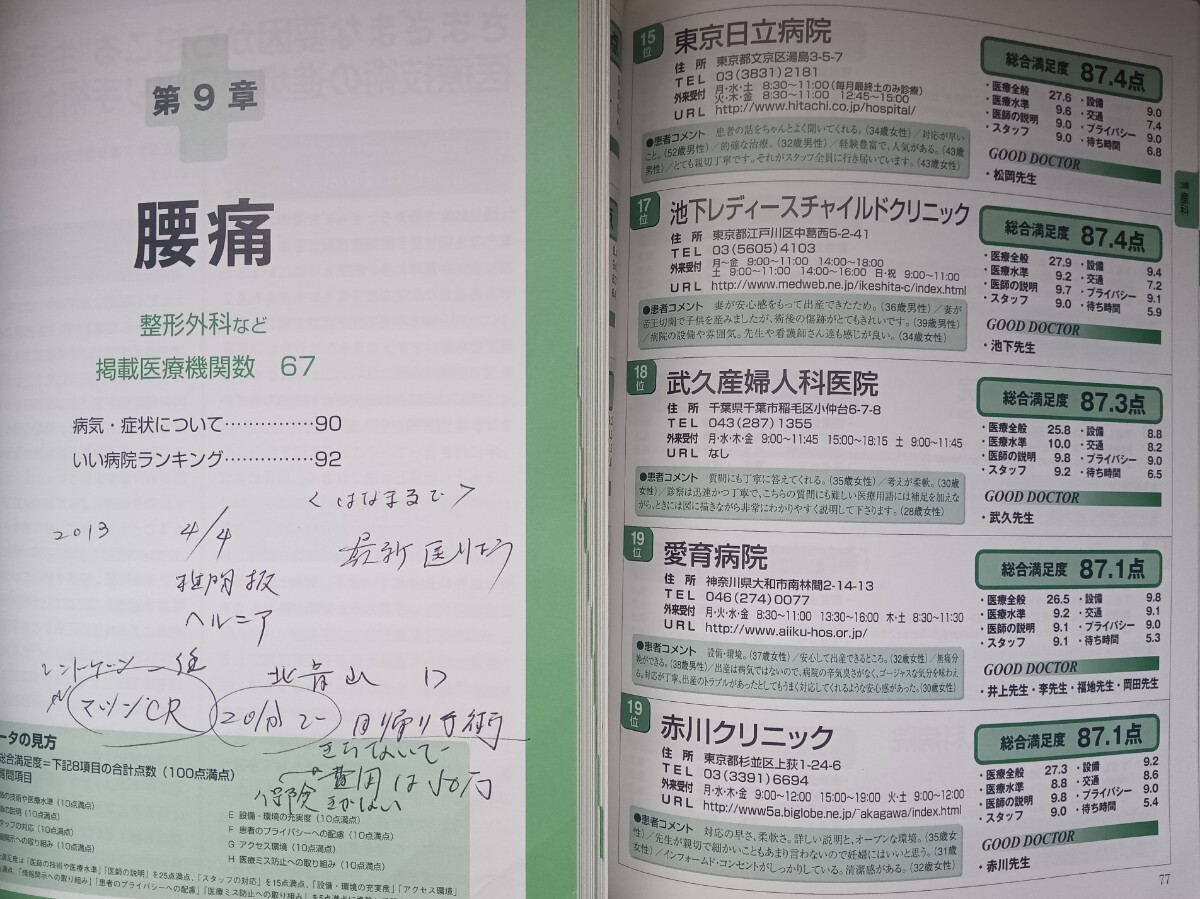 第9章
腰痛
整形外科など
掲載医療機関数 67
病気・症状について……………90
いい病院ランキング……………92
<はなまるで>
2013 4/4
最新医りょう
椎間板
ヘルニア
レントゲン
北青山
マッシンCR
20分で
日帰り手術
きらないで
費用は50万
保険きかない
ータの見方
総合満足度=下記8項目の合計点数(100点満点)
質問項目
師の技術や医療水準(10点満点)
師の説明(10点満点)
タッフの対応(10点満点)
報開示への取り組み(10点満点)
E 設備・環境の充実度(10点満点)
F 患者のプライバシーへの配慮(10点満点)
G アクセス環境(10点満点)
H 医療ミス防止への取り組み(10点満点)
満足度は「医師の技術や医療水準」「医師の説明」を25点満点、「スタッフの対応」を15点満点、「設備・環境の充実度」「アクセス環境」
点満点、「情報開示への取り組み」「患者のプライバシーへの配慮」「医療ミス防止への取り組み」を5点満点に
15位 東京日立病院
住所 東京都文京区湯島3-5-7
TEL 03(3831)2181
外来受付 月・水・土 8:30~11:00(毎月最終土のみ診療)
火・木・金 8:30~11:00 12:45~15:00
URL http://www.hitachi.co.jp/hospital/
●患者コメント 患者の話をちゃんとよく聞いてくれる。(34歳女性)/対応が早い
こと。(52歳男性)/的確な治療。(32歳男性)/経験豊富で、人気がある。(43歳
男性)/とても親切丁寧です。それがスタッフ全員に行き届いています。(43歳女性)
総合満足度 87.4点
・医療全般 27.6 ・設備 9.0
・医療水準 9.6 ・交通 7.4
・医師の説明 9.0 ・プライバシー 9.0
・スタッフ 9.0 ・待ち時間 6.8
GOOD DOCTOR
・松岡先生
産科
17位 池下レディースチャイルドクリニック
住所 東京都江戸川区中葛西5-2-41
TEL 03(5605)4103
外来受付 月~金 9:00~11:00 14:00~18:00
土 9:00~11:00 14:00~16:00 日・祝 9:00~11:00
URL http://www.medweb.ne.jp/ikeshita-c/index.html
●患者コメント 妻が安心感をもって出産できたため。(36歳男性)/妻が
帝王切開で子供を産みましたが、術後の傷跡がとてもきれいです。(39歳男性)
/病院の設備や雰囲気。先生や看護師さん達も感じが良い。(34歳女性)
総合満足度 87.4点
・医療全般 27.9 ・設備 9.4
・医療水準 9.2 ・交通 7.2
・医師の説明 9.7 ・プライバシー 9.1
・スタッフ 9.0 ・待ち時間 5.9
GOOD DOCTOR
・池下先生
18位 武久産婦人科医院
住所 千葉県千葉市稲毛区小仲台6-7-8
TEL 043(287)1355
外来受付 月・水・木・金 9:00~11:45 15:00~18:15 土 9:00~11:45
URL なし
●患者コメント 質問にも丁寧に答えてくれる。(35歳女性)/考えが柔軟。(30歳
女性)/診察は迅速かつ丁寧で、こちらの質問にも難しい医療用語には補足を加えな
がら、ときには図に描きながら非常にわかりやすく説明して下さります。(28歳女性)
総合満足度 87.3点
・医療全般 25.8 ・設備 8.8
・医療水準 10.0 ・交通 8.2
・医師の説明 9.8 ・プライバシー 9.0
・スタッフ 9.2 ・待ち時間 6.5
GOOD DOCTOR
・武久先生
19位 愛育病院
住所 神奈川県大和市南林間2-14-13
TEL 046(274)0077
外来受付 月・火・水・金 8:30~11:00 13:30~16:00 木・土 8:30~11:30
URL http://www.aiiku-hos.or.jp/
●患者コメント 設備・環境。(37歳女性)/安心して出産できるところ。(32歳女性)/無痛分
娩ができる。(38歳男性)/出産は病気ではないので、病院の辛気臭さがなく、ゴージャスな気分を味わえ
る。対応が丁寧、出産のトラブルがあったとしてもうまく対応してくれるような安心感があった。(30歳女性)
総合満足度 87.1点
・医療全般 26.5 ・設備 9.8
・医療水準 9.2 ・交通 9.1
・医師の説明 9.1 ・プライバシー 9.0
・スタッフ 9.1 ・待ち時間 5.3
GOOD DOCTOR
・井上先生・李先生・福地先生・岡田先生
19位 赤川クリニック
住所 東京都杉並区上荻1-24-6
TEL 03(3391)6694
外来受付 月・水・木・金 9:00~12:00 15:00~19:00 火・土 9:00~12:00
URL http://www5a.biglobe.ne.jp/~akagawa/index.html
●患者コメント 対応の早さ、柔軟さ。詳しい説明と、オープンな環境。(35歳女
性)/先生が親切で細かいこともあまり言わないので妊婦にはいいと思う。(31歳
女性)/インフォームド・コンセントがしっかりしている。清潔感がある。(32歳女性)
総合満足度 87.1点
・医療全般 27.3 ・設備 9.2
・医療水準 8.8 ・交通 8.6
・医師の説明 9.8 ・プライバシー 9.0
・スタッフ 9.0 ・待ち時間 5.4
GOOD DOCTOR
・赤川先生
77